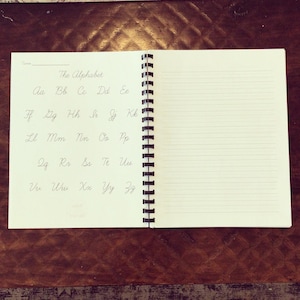 The Alphabet
Aa Bb Cc Dd Ee
Ff Gg Hh Ii Jj Kk
Ll Mm Nn Oo Pp
Qq Rr Ss Tt Uu
Vv Ww Xx Yy Zz